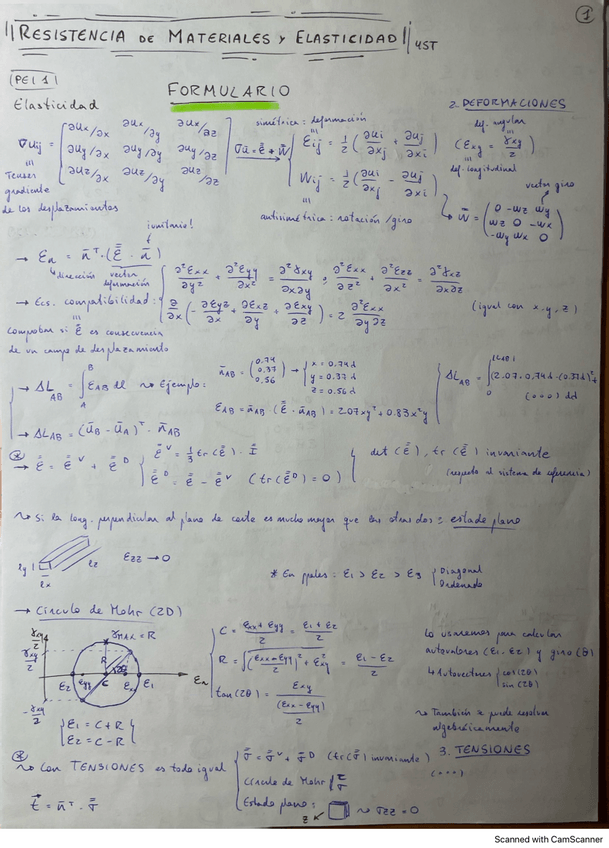 1
RESISTENCIA DE MATERIALES Y ELASTICIDAD
4ST
PEI 1
FORMULARIO
Elasticidad
2. DEFORMACIONES
∇uij = (∂ux/∂x ∂ux/∂y ∂ux/∂z
∂uy/∂x ∂uy/∂y ∂uy/∂z
∂uz/∂x ∂uz/∂y ∂uz/∂z)
Tensor gradiente
de los desplazamientos
simétrica: deformación
Eij = 1/2 (∂ui/∂xj + ∂uj/∂xi)
Wij = 1/2 (∂ui/∂xj - ∂uj/∂xi)
antisimétrica: rotación/giro
def. angular
(Exy = γxy/2)
def. longitudinal
vector giro
W = (0 -wz wy
wz 0 -wx
-wy wx 0)
¡unitario!
→ En = n^T · (E · n)
dirección vector deformación
→ Ecs. compatibilidad:
∂²Exx/∂y² + ∂²Eyy/∂x² = ∂²γxy/∂x∂y ; ∂²Exx/∂z² + ∂²Ezz/∂x² = ∂²γxz/∂x∂z
∂/∂x (-∂Eyz/∂x + ∂Exz/∂y + ∂Exy/∂z) = 2 ∂²Exx/∂y∂z
(igual con x, y, z)
Comprobar si E es consecuencia
de un campo de desplazamiento
→ ΔL AB = ∫ A B EAB dl ~> Ejemplo:
nAB = (0.74 0.37 0.56) → x = 0.74λ y = 0.37λ z = 0.56λ
EAB = nAB (E · nAB) = 2.07xy² + 0.83x²y
ΔL AB = ∫ 0 |AB| (2.07·0.74λ·(0.37λ)² +
(ooo) dλ
→ ΔLAB = (uB - uA)^T · nAB
* → E = E^V + E^D
E^V = 1/3 tr(E) · I
E^D = E - E^V (tr(E^D) = 0)
det(E), tr(E) invariante
(respecto al sistema de referencia)
~> Si la long. perpendicular al plano de corte es mucho mayor que las otras dos: estado plano
ly lx lz
Ezz → 0
* En ppales: E1 > E2 > E3 Diagonal
Ordenado
→ Círculo de Mohr (2D)
γxy/2
γxy/2
-γxy/2
γMAX = R
R
2θ
E2 Eyy C Exx E1 En
E1 = C + R
E2 = C - R
C = (Exx + Eyy)/2 = (E1 + E2)/2
R = √(((Exx - Eyy)/2)² + E²xy) = (E1 - E2)/2
tan(2θ) = Exy/((Exx - Eyy)/2)
Lo usaremos para calcular
autovalores (E1, E2) y giro (θ)
↳ Autovectores cos(2θ)
sin(2θ)
~> También se puede resolver
algebráicamente
3. TENSIONES
(ooo)
* ~> Con TENSIONES es todo igual
σ = σ^V + σ^D (tr(σ) invariante)
Círculo de Mohr τ σ
Estado plano: z ~> σzz = 0
t = n^T · σ
Scanned with CamScanner